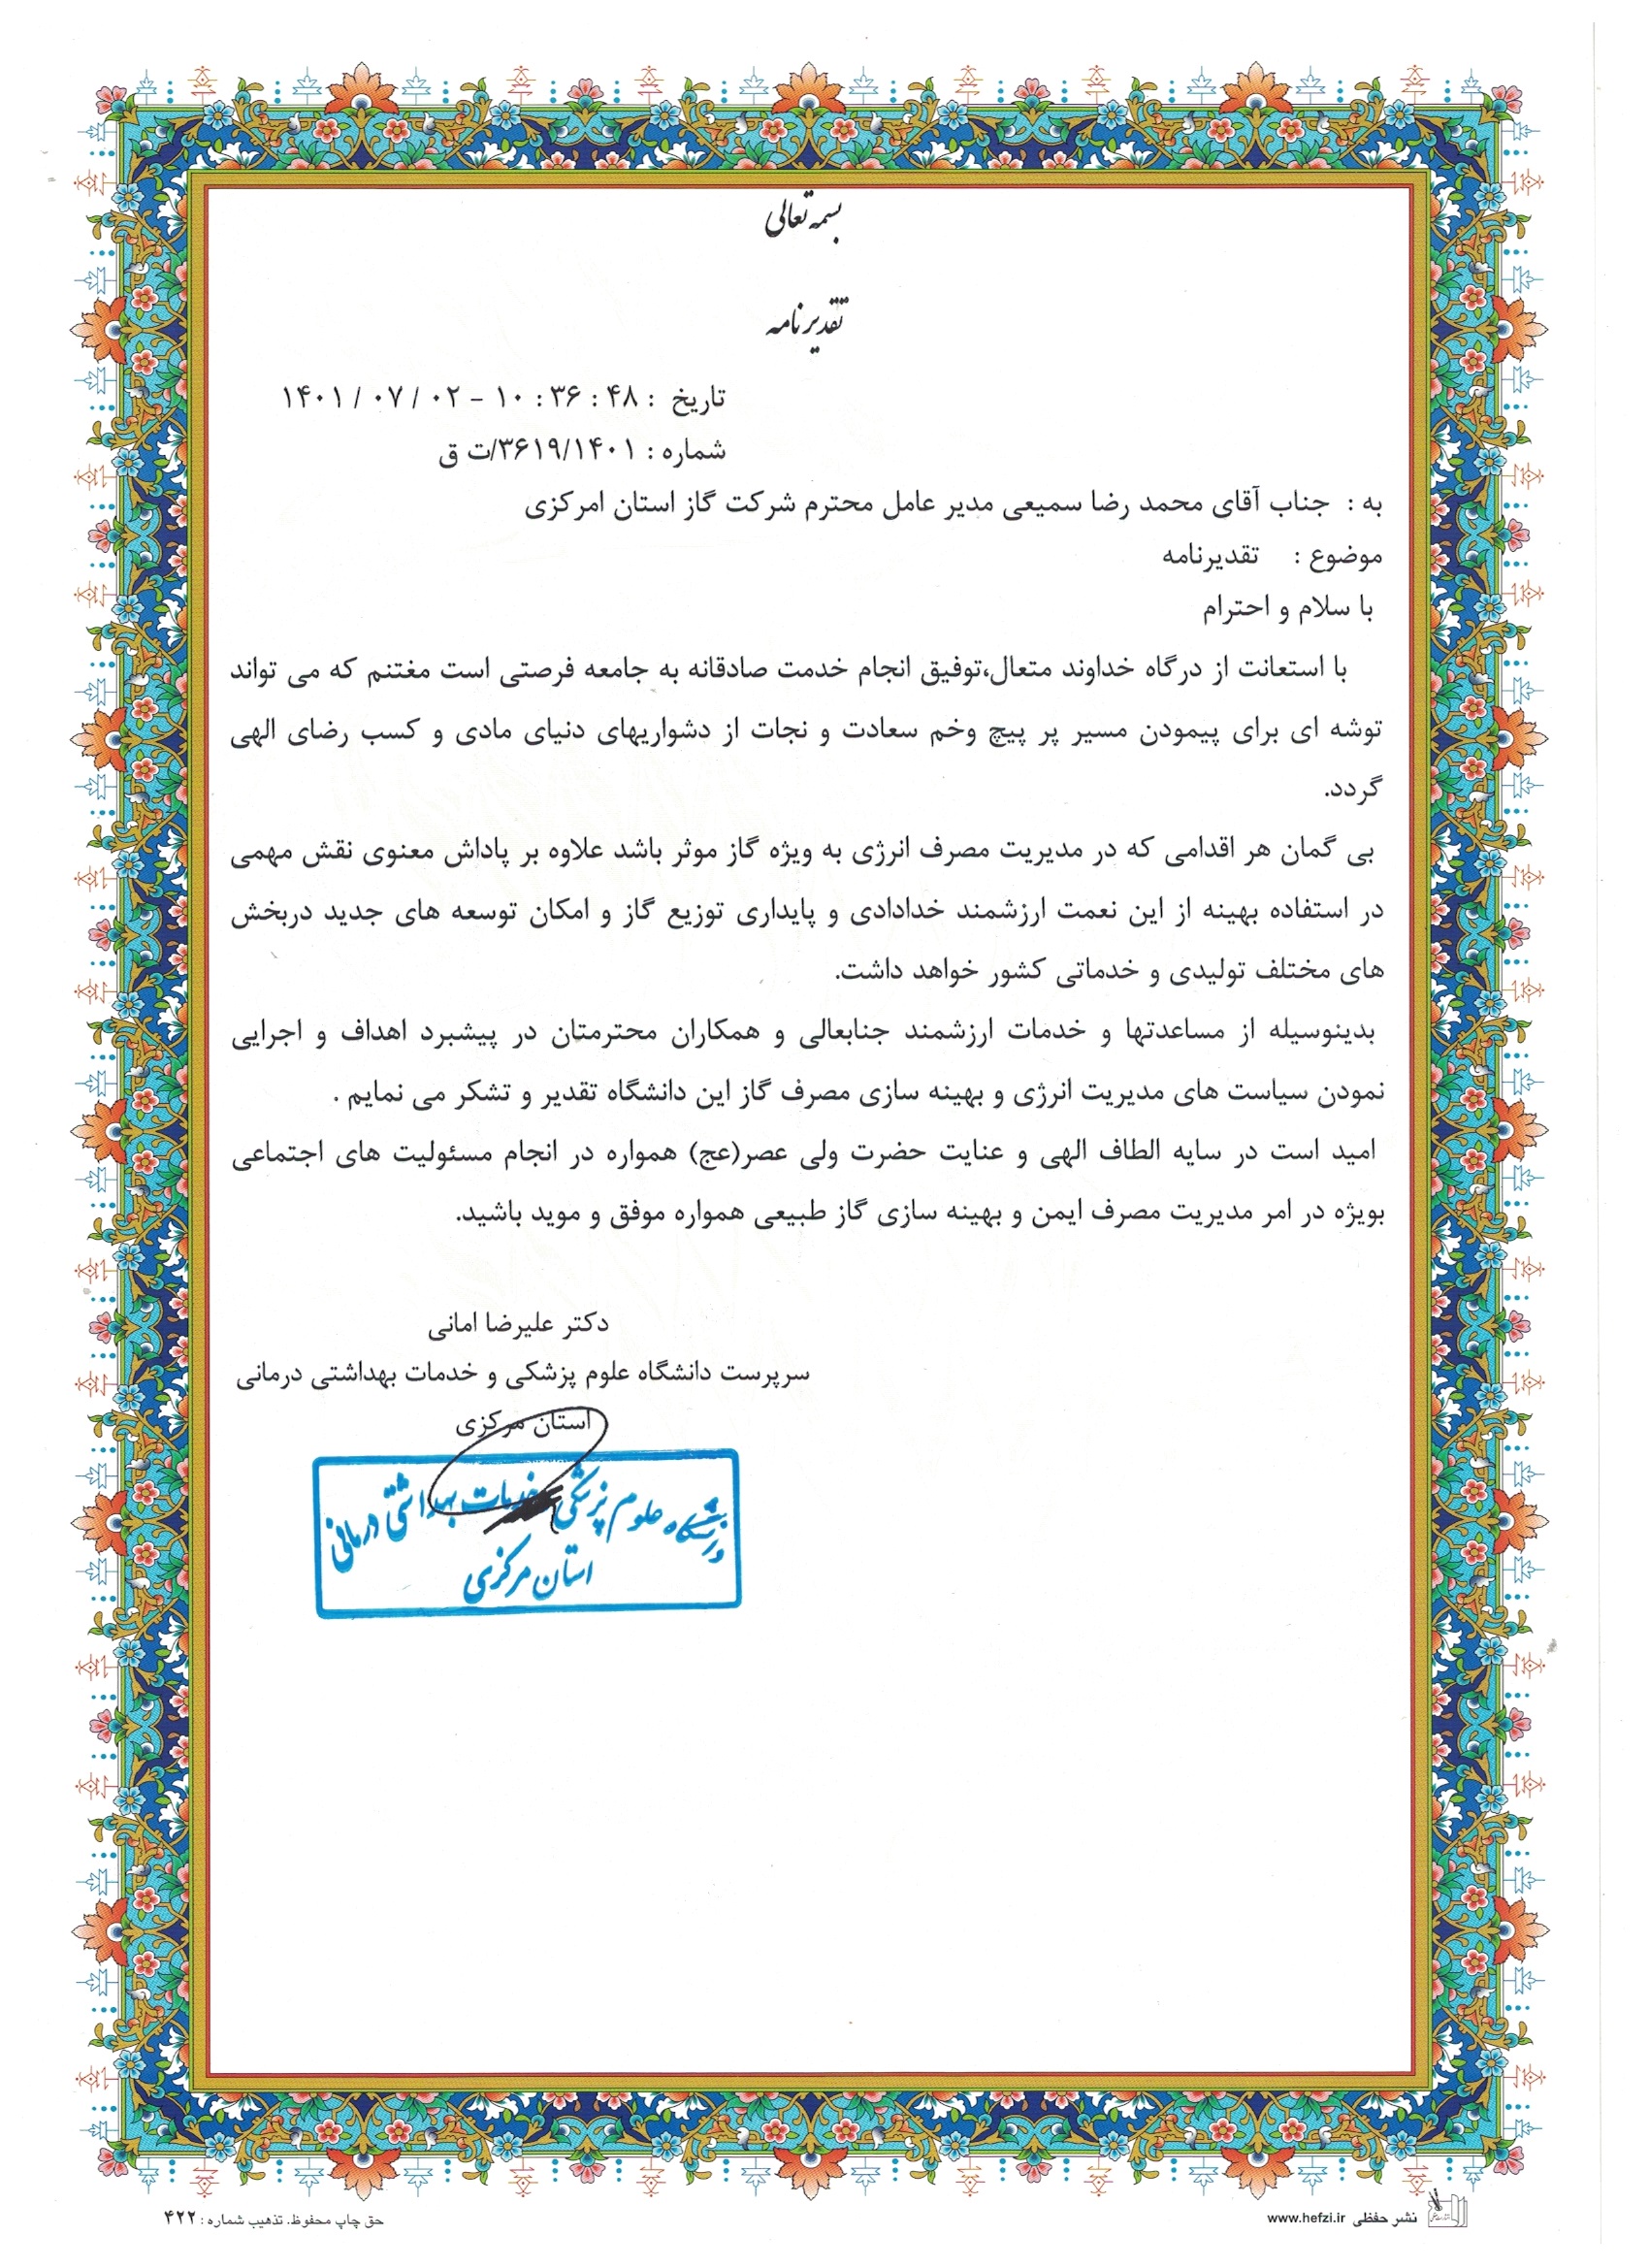 بسمه تعالی
تقدیرنامه
تاریخ : ۴۸ : ۳۶ : ۱۰ - ۰۲ / ۰۷ / ۱۴۰۱
شماره : ۳۶۱۹/۱۴۰۱/ت ق
به : جناب آقای محمد رضا سمیعی مدیر عامل محترم شرکت گاز استان امرکزی
موضوع : تقدیرنامه
با سلام و احترام
با استعانت از درگاه خداوند متعال،توفیق انجام خدمت صادقانه به جامعه فرصتی است مغتنم که می تواند
توشه ای برای پیمودن مسیر پر پیچ وخم سعادت و نجات از دشواریهای دنیای مادی و کسب رضای الهی
گردد.
بی گمان هر اقدامی که در مدیریت مصرف انرژی به ویژه گاز موثر باشد علاوه بر پاداش معنوی نقش مهمی
در استفاده بهینه از این نعمت ارزشمند خدادادی و پایداری توزیع گاز و امکان توسعه های جدید دربخش
های مختلف تولیدی و خدماتی کشور خواهد داشت.
بدینوسیله از مساعدتها و خدمات ارزشمند جنابعالی و همکاران محترمتان در پیشبرد اهداف و اجرایی
نمودن سیاست های مدیریت انرژی و بهینه سازی مصرف گاز این دانشگاه تقدیر و تشکر می نمایم .
امید است در سایه الطاف الهی و عنایت حضرت ولی عصر(عج) همواره در انجام مسئولیت های اجتماعی
بویژه در امر مدیریت مصرف ایمن و بهینه سازی گاز طبیعی همواره موفق و موید باشید.
دکتر علیرضا امانی
سرپرست دانشگاه علوم پزشکی و خدمات بهداشتی درمانی
استان مرکزی
دانشگاه علوم پزشکی خدمات بهداشتی درمانی
استان مرکزی
نشر حفظی www.hefzi.ir
حق چاپ محفوظ. تذهیب شماره : ۴۲۲